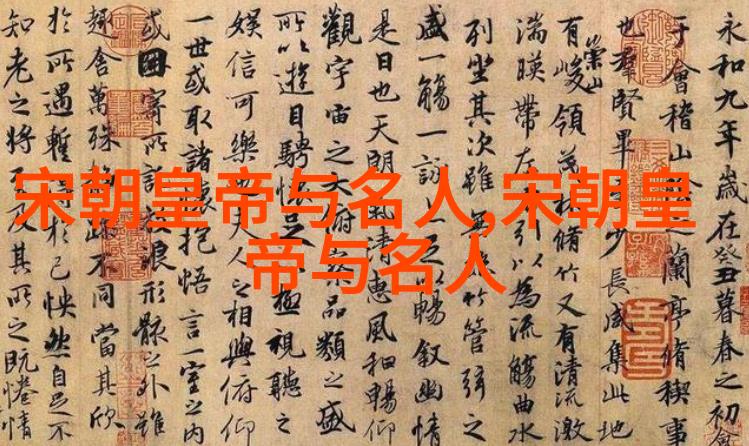 宋朝皇帝与名人,宋朝皇
帝与名人
永和九年歲在癸丑暮春之初會
于會稽山之蘭亭脩稧事
也羣賢畢少長咸集此地
有崇山峻領茂林脩竹又有清流激
湍暎帶左引以為流觴曲水
列坐其次雖無竹管弦之
盛一觴一詠以暢敘幽情
是日也天朗氣清惠風和暢仰
觀宇宙之大俯察品類之盛
所以遊目騁懷足極視聽之
娛信可樂也夫人之相與俯仰
一世或取諸懷抱悟言一室之內
或因寄所託放浪形骸之外雖
趣舍萬殊不同當其欣
於所遇暫得於己怏然自足不
知老之將及其所之既惓情